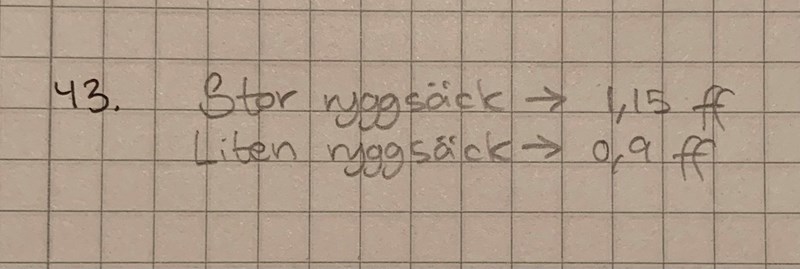 43. Stor ryggsäck → 1,15 ff
Liten ryggsäck → 0,9 ff